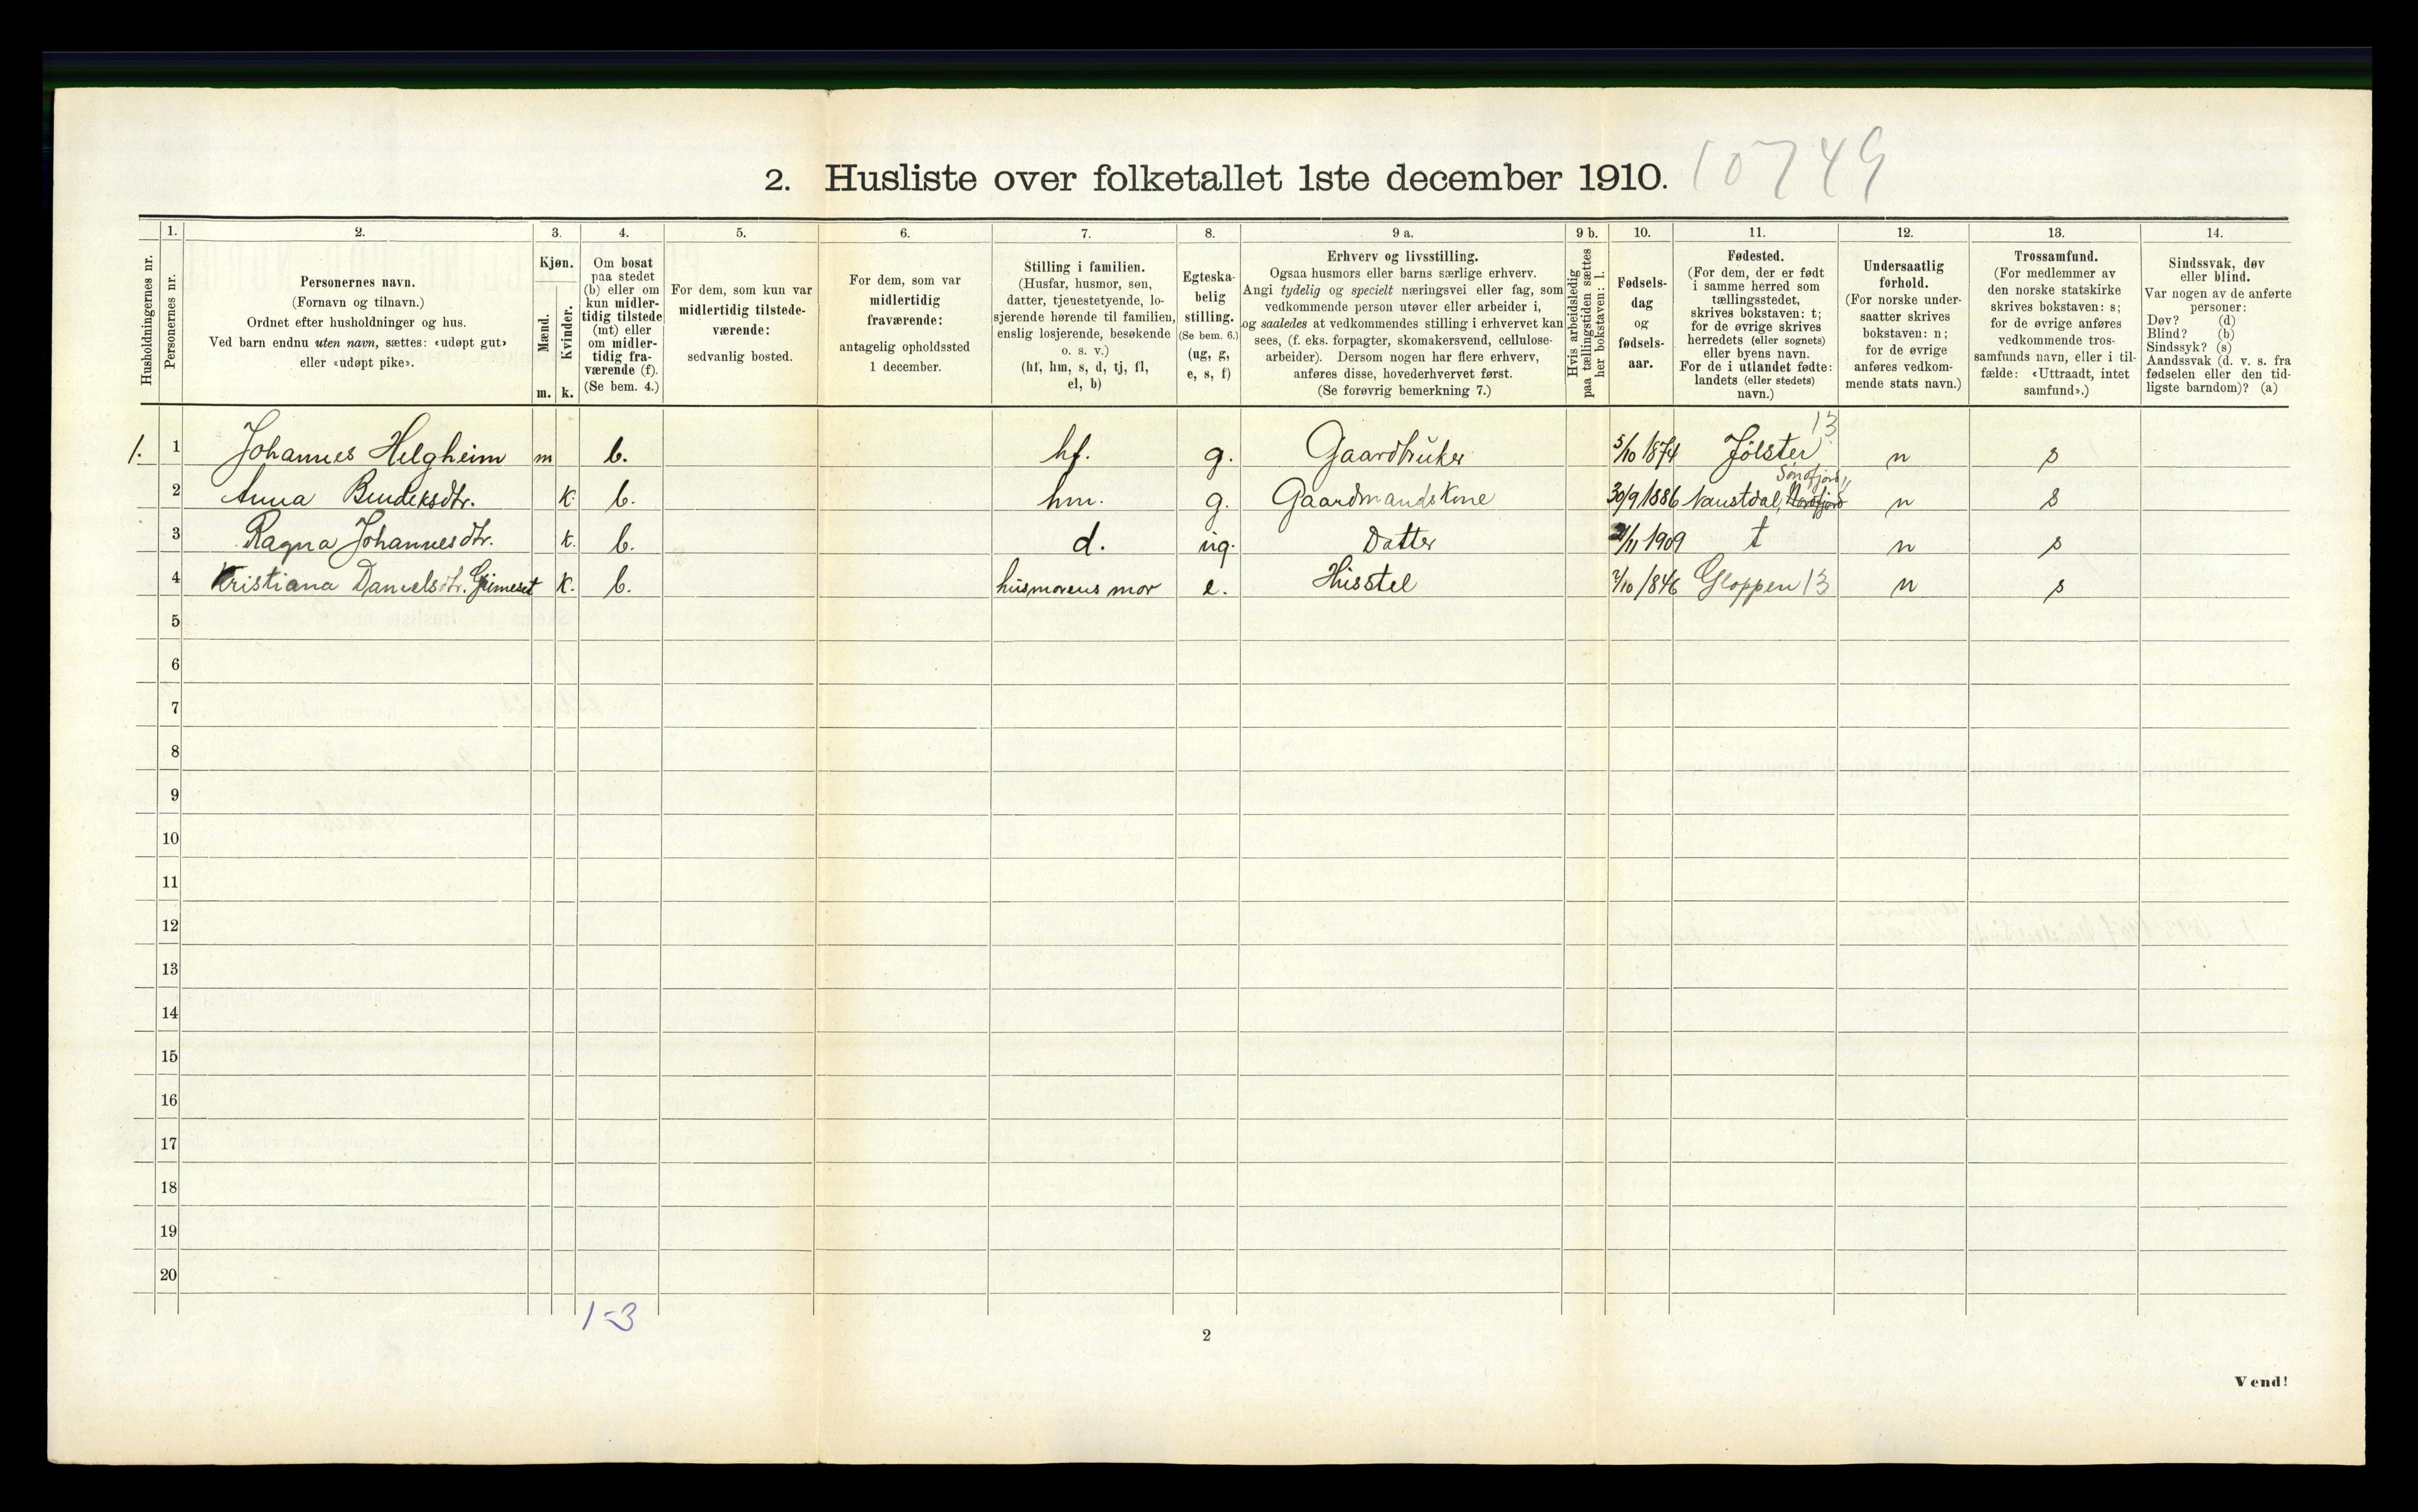 2. Husliste over folketallet 1ste december 1910. 10749
Husholdningernes nr.
1.
Personernes nr.
2.
Personernes navn.
(Fornavn og tilnavn.)
Ordnet efter husholdninger og hus.
Ved barn endnu uten navn, sættes: «udøpt gut»
eller «udøpt pike».
3.
Kjøn.
Mænd.
Kvinder.
m. k.
4.
Om bosat
paa stedet
(b) eller om
kun midler-
tidig tilstede
(mt) eller
om midler-
tidig fra-
værende (f).
(Se bem. 4.)
5.
For dem, som kun var
midlertidig tilstede-
værende:
sedvanlig bosted.
6.
For dem, som var
midlertidig
fraværende:
antagelig opholdssted
1 december.
7.
Stilling i familien.
(Husfar, husmor, søn,
datter, tjenestetyende, lo-
sjerende hørende til familien,
enslig losjerende, besøkende
o. s. v.)
(hf, hm, s, d, tj, fl,
el, b)
8.
Egteska-
belig
stilling.
(Se bem. 6.)
(ug, g,
e, s, f)
9 a.
Erhverv og livsstilling.
Ogsaa husmors eller barns særlige erhverv.
Angi tydelig og specielt næringsvei eller fag, som
vedkommende person utøver eller arbeider i,
og saaledes at vedkommendes stilling i erhvervet kan
sees, (f. eks. forpagter, skomakersvend, cellulose-
arbeider). Dersom nogen har flere erhverv,
anføres disse, hovederhvervet først.
(Se forøvrig bemerkning 7.)
9 b.
Hvis arbeidsledig
paa tællingstiden sættes
her bokstaven: l.
10.
Fødsels-
dag
og
fødsels-
aar.
11.
Fødested.
(For dem, der er født
i samme herred som
tællingsstedet,
skrives bokstaven: t;
for de øvrige skrives
herredets (eller sognets)
eller byens navn.
For de i utlandet fødte:
landets (eller stedets)
navn.)
12.
Undersaatlig
forhold.
(For norske under-
saatter skrives
bokstaven: n;
for de øvrige
anføres vedkom-
mende stats navn.)
13.
Trossamfund.
(For medlemmer av
den norske statskirke
skrives bokstaven: s;
for de øvrige anføres
vedkommende tros-
samfunds navn, eller i til-
fælde: «Uttraadt, intet
samfund».)
14.
Sindssvak, døv
eller blind.
Var nogen av de anførte
personer:
Døv? (d)
Blind? (b)
Sindssyk? (s)
Aandssvak (d. v. s. fra
fødselen eller den tid-
ligste barndom)? (a)
13
1. 1 Johannes Helgheim m b. hf. g. Gaardbruker 5/10 1874 Jølster n s
Søndfjord
2 Anna Bendeksdtr. k. b. hm. g. Gaardmandskone 30/9 1886 Naustdal, n s
3 Ragna Johannesdtr. k. b. d. ug. Datter /11 1909 t n s
4 Kristiana Danielsdtr. k. b. husmorens mor e. Husstel /10 1846 Gloppen 13 n s
5
6
7
8
9
10
11
12
13
14
15
16
17
18
19
20
1-3
2
Vend!